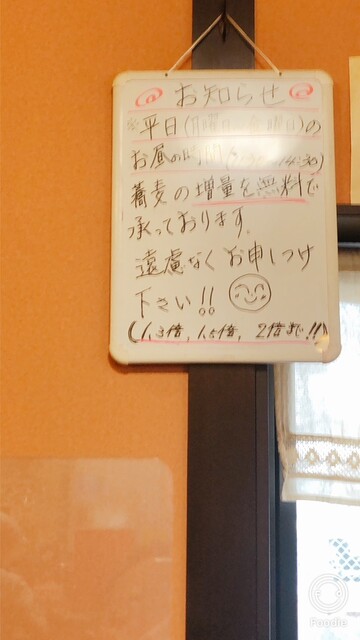 お知らせ
※平日(月曜日~金曜日)の
お昼の時間( 14:30)
蕎麦の増量を無料で
承っております。
遠慮なくお申しつけ
下さい!!
(1.3倍, 1.5倍, 2倍まで!!)
Foodie